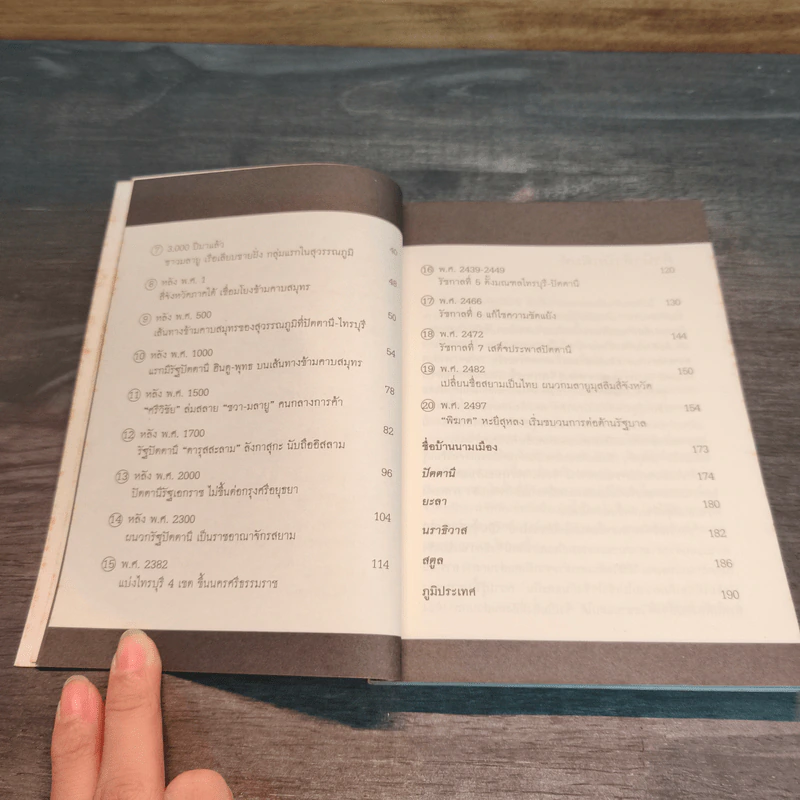 7 3,000 ปีมาแล้ว
ชวามลายู เรือเลียบชายฝั่ง กลุ่มแรกในสุวรรณภูมิ 40
8 หลัง พ.ศ. 1 48
สี่จังหวัดภาคใต้ เชื่อมโยงข้ามคาบสมุทร
9 หลัง พ.ศ. 500 50
เส้นทางข้ามคาบสมุทรของสุวรรณภูมิที่ปัตตานี-ไทรบุรี
10 หลัง พ.ศ. 1000 54
แรกมีรัฐปัตตานี ฮินดู-พุทธ บนเส้นทางข้ามคาบสมุทร
11 หลัง พ.ศ. 1500 78
"ศรีวิชัย" ล่มสลาย "ชวา-มลายู" คนกลางการค้า
12 หลัง พ.ศ. 1700 82
รัฐปัตตานี "ดารุสสะลาม" ลังกาสุกะ นับถืออิสลาม
13 หลัง พ.ศ. 2000 96
ปัตตานีรัฐเอกราช ไม่ขึ้นต่อกรุงศรีอยุธยา
14 หลัง พ.ศ. 2300 104
ผนวกรัฐปัตตานี เป็นราชอาณาจักรสยาม
15 พ.ศ. 2382 114
แบ่งไทรบุรี 4 เขต ขึ้นนครศรีธรรมราช
16 พ.ศ. 2439-2449 120
รัชกาลที่ 5 ตั้งมณฑลไทรบุรี-ปัตตานี
17 พ.ศ. 2466 130
รัชกาลที่ 6 แก้ไขความขัดแย้ง
18 พ.ศ. 2472 144
รัชกาลที่ 7 เสด็จประพาสปัตตานี
19 พ.ศ. 2482 150
เปลี่ยนชื่อสยามเป็นไทย ผนวกมลายูมุสลิมสี่จังหวัด
20 พ.ศ. 2497 154
"พิฆาต" หะยีสุหลง เริ่มขบวนการต่อต้านรัฐบาล
ชื่อบ้านนามเมือง 173
ปัตตานี 174
ยะลา 180
นราธิวาส 182
สตูล 186
ภูมิประเทศ 190